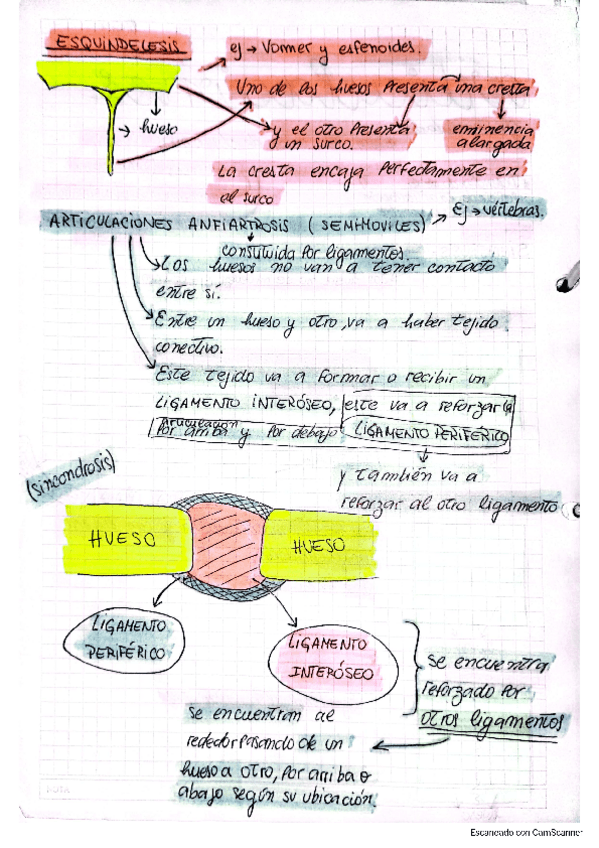 ESQUINDELESIS
ej → Vommer y esfenoides.
Uno de los huesos Presenta una cresta
→ hueso
y el otro Presenta
un surco.
eminencia
alargada
La cresta encaja Perfectamente en
al surco
ARTICULACIONES ANFIARTROSIS (SEMI-MOVILES) → Ej → vértebras.
constituida por ligamentos.
Los huesos no van a tener contacto
entre sí.
Entre un hueso y otro, va a haber tejido
conectivo.
Este tejido va a formar o recibir un
LIGAMENTO INTERÓSEO, este va a reforzar la
articulación
Por arriba y por debajo LIGAMENTO PERIFERICO
y también va a
reforzar al otro ligamento
(sincondrosis)
HUESO
HUESO
LIGAMENTO
PERIFÉRICO
LIGAMENTO
INTERÓSEO
se encuentra
reforzado por
otros ligamentos
se encuentran al
rededor pasando de un
hueso a otro, por arriba o
abajo según su ubicación.
Escaneado con CamScanner